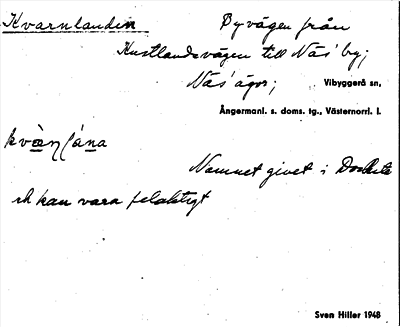 Kvarnlanden
Byvägen från
Kustlandsvägen till Näs' by;
Näs' ägor;
Vibyggerå sn,
Ångermanl. s. doms. tg., Västernorrl. l.
Namnet givet i Docksta
ch kan vara felaktigt
Sven Hiller 1948